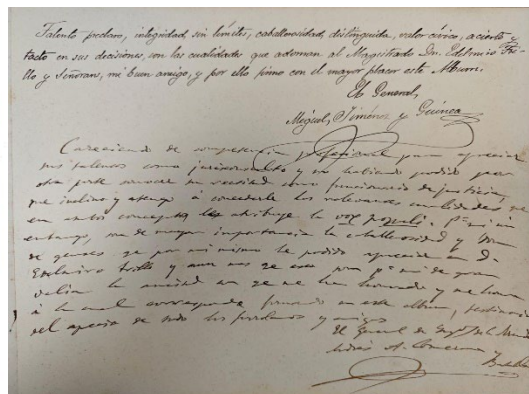 Talento preclaro, integridad, sin límites, caballerosidad, distinguida, valor cívico, acierto y
tacto en sus decisiones, son las cualidades que adornan al Magistrado Dn. Edelmiro Tri-
llo y Señorans, mi buen amigo, y por ello firmo con el mayor placer este Album.
El General,
Miguel Jiménez y Guinea
Careciendo de competencia profesional para apreciar
sus talentos como jurisconsulto y no habiendo podido por
otra parte conocer su rectitud como funcionario de justicia,
me inclino y atengo á concederle las relevantes cualidades que
en estos conceptos le atribuye la vox populi. Pª mi sin
embargo, son de mayor importancia la caballerosidad y
de gentes que por mi mismo he podido apreciar en D.
Edelmiro Trillo y aun mas que eso pª mi de gran
valia la amistad con que me ha honrado y me honra
á la cual correspondo firmando en este album, testimonio
del aprecio de todos los
El General de